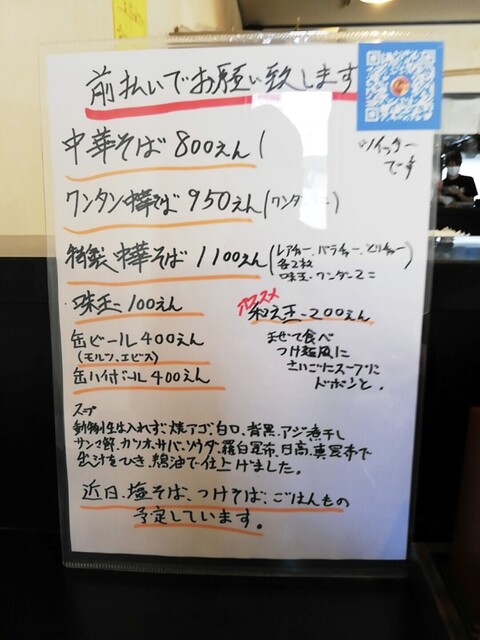 前払いでお願い致します
ツイッター
です
中華そば 800えん
ワンタン中華そば 950えん(ワンタン
特製中華そば 1100えん(レアチャー、バラチャー、とりチャー
各2枚
味玉・ワンタン2こ
味玉 100えん
オススメ
和え玉-200えん
まぜて食べ
つけ麺風に
さいごにスープに
ドボンと。
缶ビール 400えん
(モルツ、エビス)
缶ハイボール 400えん
スープ
動物生は入れず、焼アゴ、白口、背黒、アジ煮干し
サンマ節、カツオ、サバ、ソウダ、羅臼昆布、日高、真昆布で
出汁をひき、鶏油で仕上げました。
近日、塩そば、つけそば、ごはんもの
予定しています。